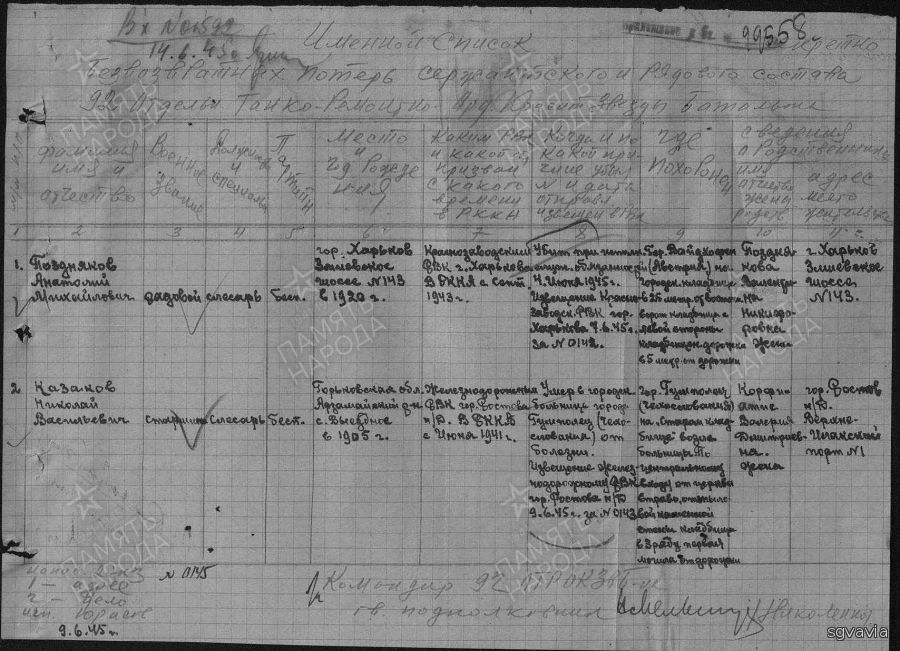 Вх №01592
14.6.45г
99558
Именной Список
Секретно
Безвозвратных потерь сержантского и рядового состава
92 Отдельн Танко-Ремонтно- Орд. Красной Звезды Батальона
фамилия имя и отчество
Военное звание
Должность и специальн
Место и год рождения
Каким РВК и какой обл призван с какого времени в РККА
Когда и по какой причине убыл № и дата отправл. извещен в РВК
где похоронен
сведения о родственник
имя отчество жены родств
адрес место жительства
1 2 3 4 5 6 7 8 9 10 11
1. Поздняков Анатолий Михайлович
рядовой
слесарь
бесп.
гор. Харьков Змиевское шоссе №143 в 1920 г.
Краснозаводский РВК г. Харькова В РККА с сент. 1943 г.
Убит при исполн. служ. обязанностей 4 Июня 1945 г. Извещение Красно-заводск. РВК гор. Харькова 7.6.45 г. за №0142.
Гор. Вайдхофен (Австрия) на городск. кладбище в 25 метр. от ворот кладбища с левой стороны кладбищен. дорожки в 5 метр. от дорожки
Позднякова Валентина Никифоровна жена
г. Харьков Змиевское шоссе №143.
2 Казаков Николай Васильевич
старшина
слесарь
бесп.
Горьковская обл. Арзамайский р-н с. Выездное в 1905 г.
Железнодорожным РВК гор. Ростова н/Д. В РККА с Июня 1941 г.
Умер в городск. больнице город Гумполец (Чехословакия) от болезни. Извещение Железнодорожному РВК гор. Ростова н/Д 9.6.45 г. за №0143
Гор. Гумполец (Чехословакия) на Старом кладбище возле больницы По центральному входу от церкви вправо, от каменной стены кладбища в 3 ряду первая могила от дорожки
Валерия Дмитриевна. жена
гор. Ростов н/Д.
порт №1
№ 0145
9.6.45 г.
Командир 92 ОТРОКЗБ-на
гв подполковник
Николенко
ПАМЯТЬ НАРОДА
ПАМЯТЬ НАРОДА
ПАМЯТЬ НАРОДА
ПАМЯТЬ НАРОДА
ПАМЯТЬ НАРОДА
ПАМЯТЬ НАРОДА
sgvavia